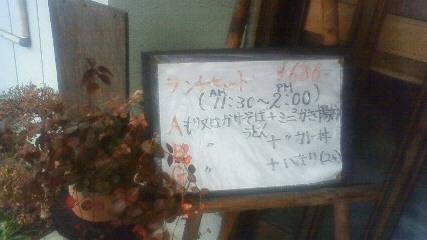 ランチセット ¥680-
(AM 11:30～PM 2:00)
A もり又はかけそば+ミニかき揚丼
うどん
B 〃 +〃カレー丼
C 〃 +いなり(2ヶ)